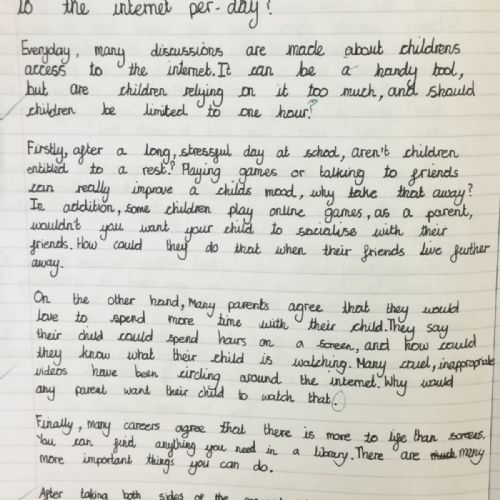 to the internet per-day?
Everyday, many discussions are made about childrens
access to the internet. It can be a handy tool,
but are children relying on it too much, and should
children be limited to one hour?
Firstly, after a long, stressful day at school, aren't children
entitled to a rest? Playing games or talking to friends
can really improve a childs mood, why take that away?
In addition, some children play online games, as a parent,
wouldn't you want your child to socialise with their
friends. How could they do that when their friends live further
away.
On the other hand, Many parents agree that they would
love to spend more time with their child. They say
their child could spend hours on a screen, and how could
they know what their child is watching. Many cruel, inappropriate
videos have been circling around the internet. Why would
any parent want their child to watch that.
Finally, many careers agree that there is more to life than screens.
You can find anything you need in a library. There are much many
more important things you can do.
After taking both sides of the